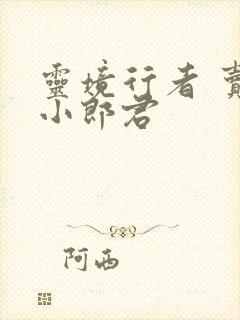 靈境行者 賣
小郎君
阿西